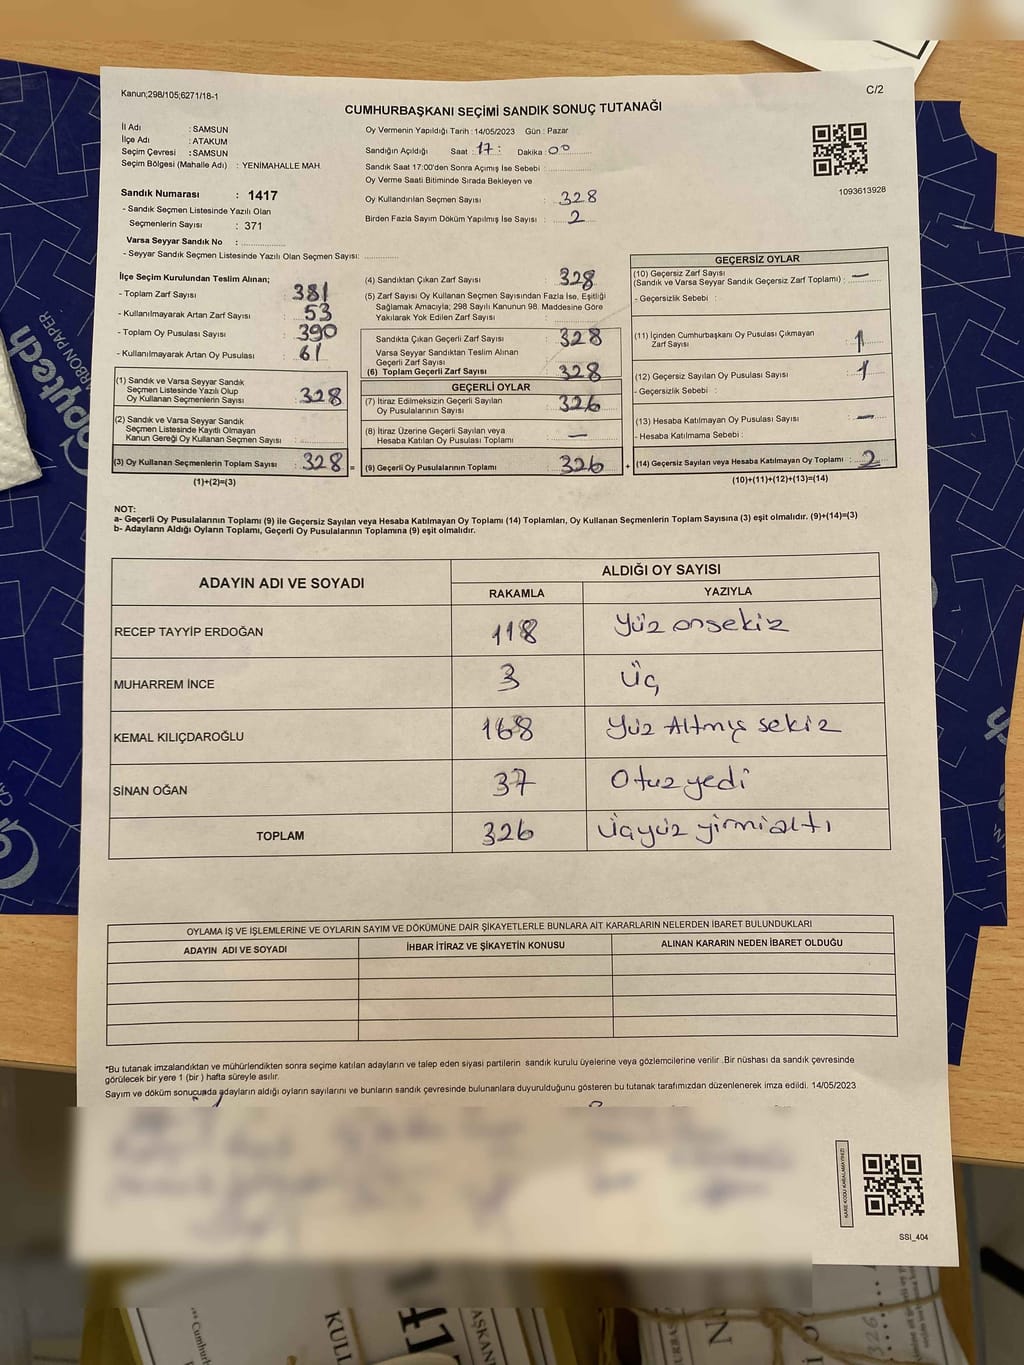 Kanun;298/105;6271/18-1
C/2
CUMHURBAŞKANI SEÇİMİ SANDIK SONUÇ TUTANAĞI
İl Adı : SAMSUN
İlçe Adı : ATAKUM
Seçim Çevresi : SAMSUN
Seçim Bölgesi (Mahalle Adı) : YENİMAHALLE MAH.
Sandık Numarası : 1417
- Sandık Seçmen Listesinde Yazılı Olan
Seçmenlerin Sayısı : 371
Varsa Seyyar Sandık No :
- Seyyar Sandık Seçmen Listesinde Yazılı Olan Seçmen Sayısı:
Oy Vermenin Yapıldığı Tarih : 14/05/2023 Gün : Pazar
Sandığın Açıldığı Saat : 17: Dakika : 00
Sandık Saat 17:00'den Sonra Açımış İse Sebebi :
Oy Verme Saati Bitiminde Sırada Bekleyen ve
Oy Kullandırılan Seçmen Sayısı : 328
Birden Fazla Sayım Döküm Yapılmış İse Sayısı : 2
1093613928
İlçe Seçim Kurulundan Teslim Alınan;
- Toplam Zarf Sayısı : 381
- Kullanılmayarak Artan Zarf Sayısı : 53
- Toplam Oy Pusulası Sayısı : 390
- Kullanılmayarak Artan Oy Pusulası : 61
(1) Sandık ve Varsa Seyyar Sandık
Seçmen Listesinde Yazılı Olup
Oy Kullanan Seçmenlerin Sayısı : 328
(2) Sandık ve Varsa Seyyar Sandık
Seçmen Listesinde Kayıtlı Olmayan
Kanun Gereği Oy Kullanan Seçmen Sayısı :
(3) Oy Kullanan Seçmenlerin Toplam Sayısı : 328 =
(1)+(2)=(3)
(4) Sandıktan Çıkan Zarf Sayısı : 328
(5) Zarf Sayısı Oy Kullanan Seçmen Sayısından Fazla İse, Eşitliği
Sağlamak Amacıyla; 298 Sayılı Kanunun 98. Maddesine Göre
Yakılarak Yok Edilen Zarf Sayısı :
Sandıkta Çıkan Geçerli Zarf Sayısı : 328
Varsa Seyyar Sandıktan Teslim Alınan
Geçerli Zarf Sayısı :
(6) Toplam Geçerli Zarf Sayısı : 328
GEÇERLİ OYLAR
(7) İtiraz Edilmeksizin Geçerli Sayılan
Oy Pusulalarının Sayısı : 326
(8) İtiraz Üzerine Geçerli Sayılan veya
Hesaba Katılan Oy Pusulası Toplamı : —
(9) Geçerli Oy Pusulalarının Toplamı : 326 +
GEÇERSİZ OYLAR
(10) Geçersiz Zarf Sayısı
(Sandık ve Varsa Seyyar Sandık Geçersiz Zarf Toplamı) : —
- Geçersizlik Sebebi :
(11) İçinden Cumhurbaşkanı Oy Pusulası Çıkmayan
Zarf Sayısı : 1
(12) Geçersiz Sayılan Oy Pusulası Sayısı : 1
- Geçersizlik Sebebi :
(13) Hesaba Katılmayan Oy Pusulası Sayısı : —
- Hesaba Katılmama Sebebi :
(14) Geçersiz Sayılan veya Hesaba Katılmayan Oy Toplamı : 2
(10)+(11)+(12)+(13)=(14)
NOT:
a- Geçerli Oy Pusulalarının Toplamı (9) ile Geçersiz Sayılan veya Hesaba Katılmayan Oy Toplamı (14) Toplamları, Oy Kullanan Seçmenlerin Toplam Sayısına (3) eşit olmalıdır. (9)+(14)=(3)
b- Adayların Aldığı Oyların Toplamı, Geçerli Oy Pusulalarının Toplamına (9) eşit olmalıdır.
ADAYIN ADI VE SOYADI ALDIĞI OY SAYISI
RAKAMLA YAZIYLA
RECEP TAYYİP ERDOĞAN 118 Yüz onsekiz
MUHARREM İNCE 3 Üç
KEMAL KILIÇDAROĞLU 168 Yüz Altmış sekiz
SİNAN OĞAN 37 Otuz yedi
TOPLAM 326 Üçyüz yirmialtı
OYLAMA İŞ VE İŞLEMLERİNE VE OYLARIN SAYIM VE DÖKÜMÜNE DAİR ŞİKAYETLERLE BUNLARA AİT KARARLARIN NELERDEN İBARET BULUNDUKLARI
ADAYIN ADI VE SOYADI İHBAR İTİRAZ VE ŞİKAYETİN KONUSU ALINAN KARARIN NEDEN İBARET OLDUĞU
*Bu tutanak imzalandıktan ve mühürlendikten sonra seçime katılan adayların ve talep eden siyasi partilerin sandık kurulu üyelerine veya gözlemcilerine verilir .Bir nüshası da sandık çevresinde
görülecek bir yere 1 (bir ) hafta süreyle asılır.
Sayım ve döküm sonucunda adayların aldığı oyların sayılarını ve bunların sandık çevresinde bulunanlara duyurulduğunu gösteren bu tutanak tarafımızdan düzenlenerek imza edildi. 14/05/2023
KARE KODU KAPALAMAYINIZ!
SSİ_404
Copytech
CARBON PAPER
KULL
AŞKANI
326